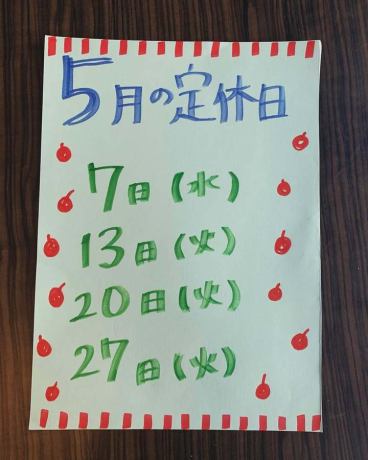 5月の定休日
7日(水)
13日(火)
20日(火)
27日(火)